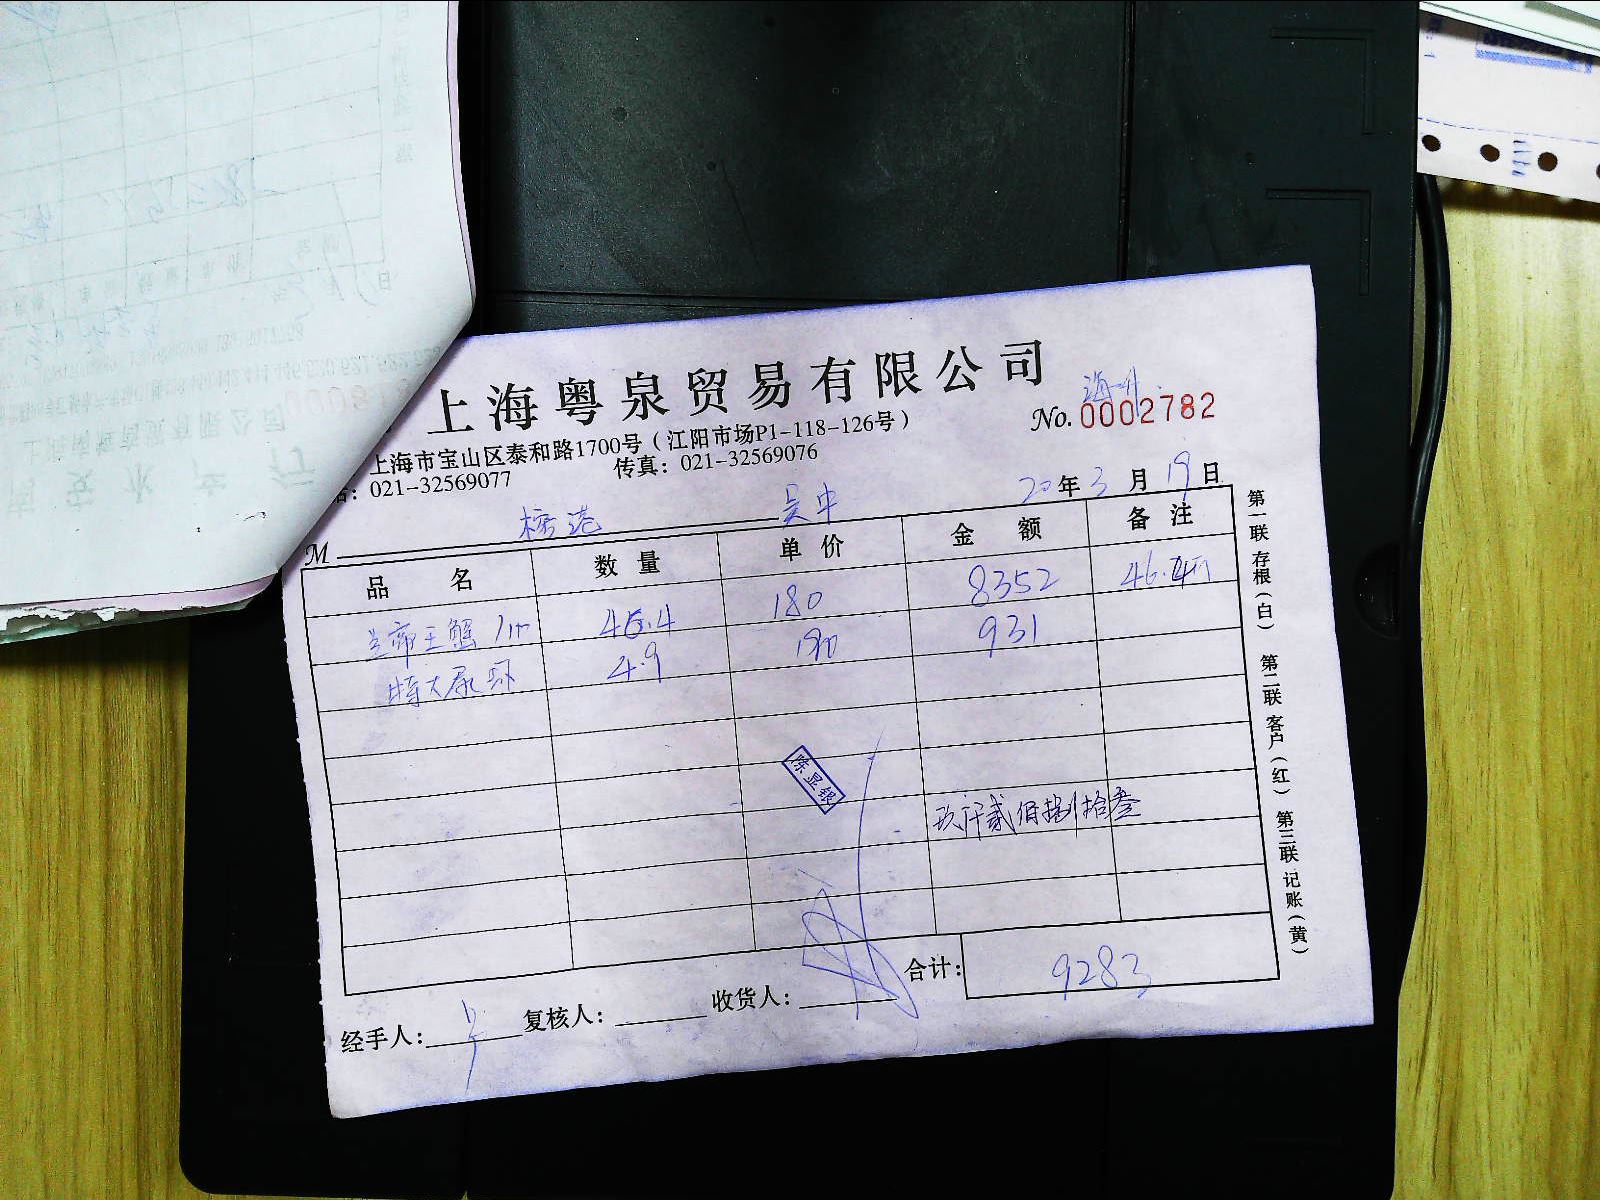 上海粤泉贸易有限公司
No. 0002782
上海市宝山区泰和路1700号（江阳市场P1-118-126号）
021-32569077 传真：021-32569076
吴中
20年3月19日
M
品名 数量 单价 金额 备注
帝王蟹 46.4 180 8352 46.4
特大 4.9 190 931
陈显银
玖仟贰佰捌拾叁
合计： 9283
经手人： 复核人： 收货人：
第一联 存根（白） 第二联 客户（红） 第三联 记账（黄）